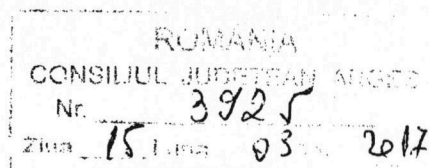 ROMÂNIA
CONSILIUL JUDEȚEAN ARGEȘ
Nr. 3925
Ziua 15 Luna 03 2017